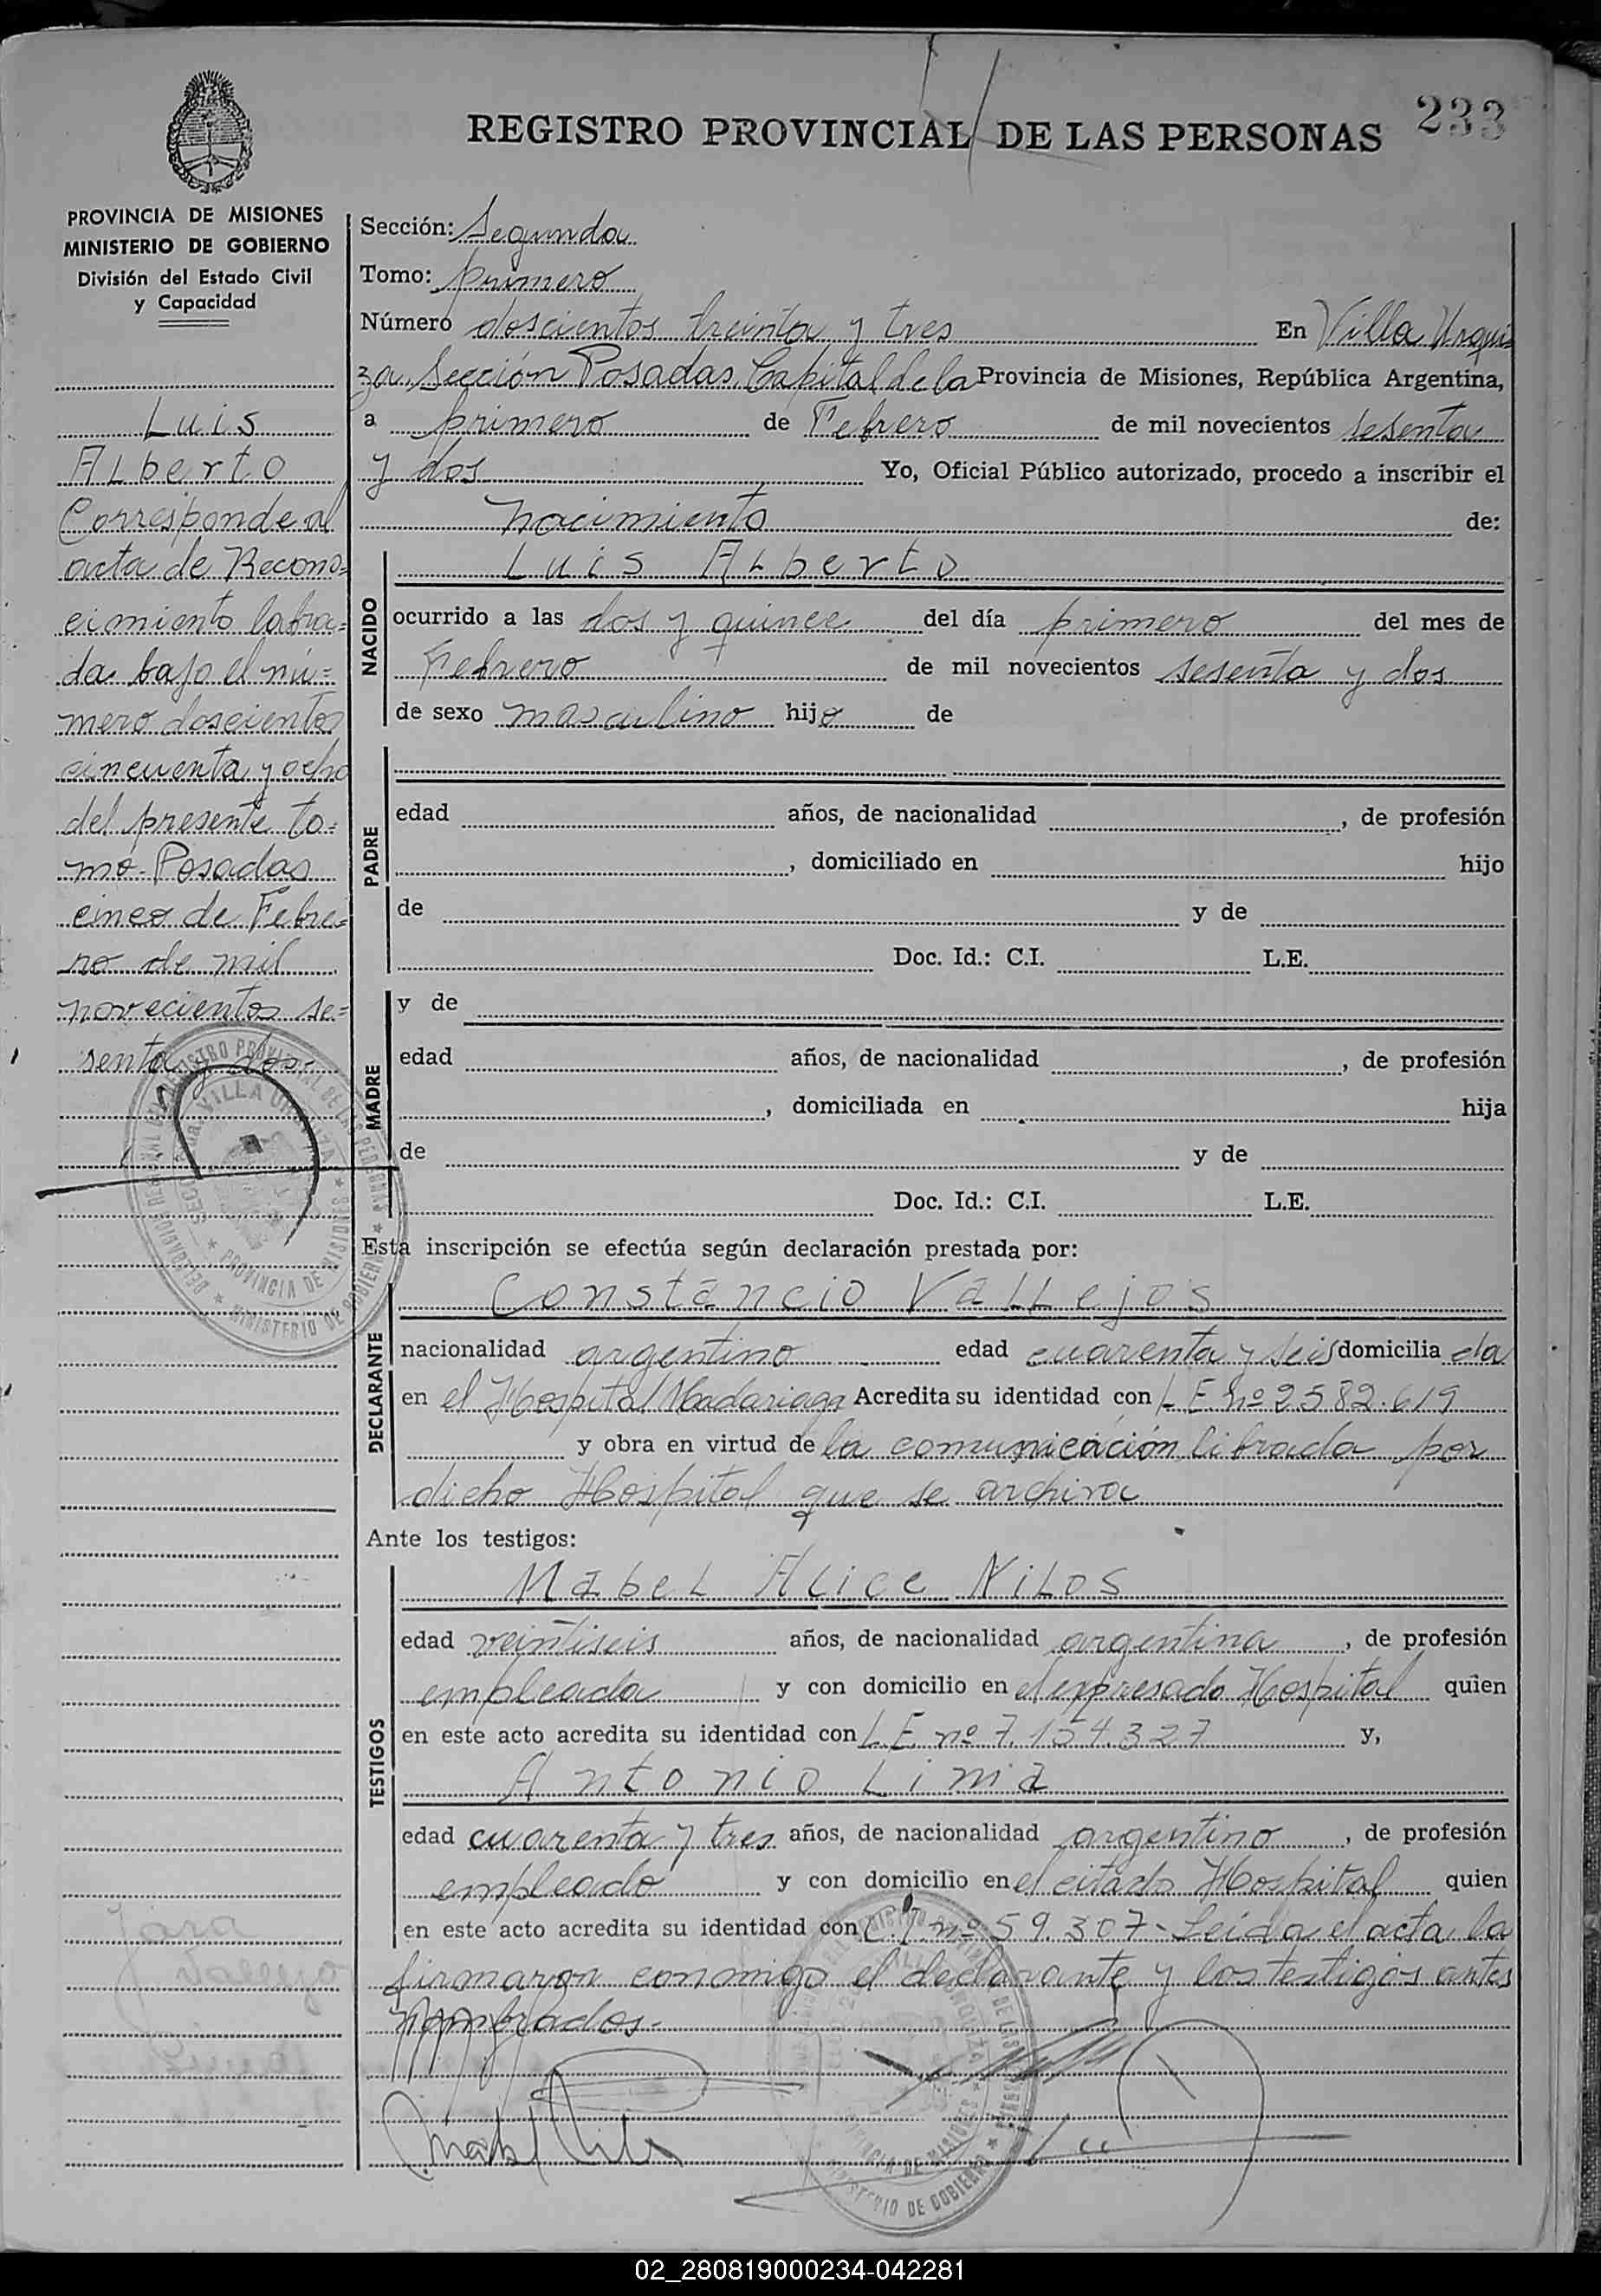 233
REGISTRO PROVINCIAL DE LAS PERSONAS
PROVINCIA DE MISIONES
MINISTERIO DE GOBIERNO
División del Estado Civil
y Capacidad
Luis
Alberto
Corresponde al
acta de Recono=
cimiento labra=
da bajo el nú=
mero doscientos
cincuenta y ocho
del presente to=
mo. Posadas
cinco de Febre=
ro de mil
novecientos se=
senta y dos.
Sección: Segunda
Tomo: primero
Número doscientos treinta y tres En Villa Urqui
za Sección Posadas Capital de la Provincia de Misiones, República Argentina,
a primero de Febrero de mil novecientos sesenta
y dos Yo, Oficial Público autorizado, procedo a inscribir el
nacimiento de:
NACIDO
Luis Alberto
ocurrido a las dos y quince del día primero del mes de
Febrero de mil novecientos sesenta y dos
de sexo masculino hijo de
PADRE
edad años, de nacionalidad , de profesión
, domiciliado en hijo
de y de
Doc. Id.: C.I. L.E.
MADRE
y de
edad años, de nacionalidad , de profesión
, domiciliada en hija
de y de
Doc. Id.: C.I. L.E.
Esta inscripción se efectúa según declaración prestada por:
DECLARANTE
Constancio Vallejos
nacionalidad argentino edad cuarenta y seis domicilia da
en el Hospital Madariaga Acredita su identidad con L E nº 2582.619
y obra en virtud de la comunicación librada por
dicho Hospital que se archiva
Ante los testigos:
TESTIGOS
Mabel Alice Nilos
edad veintiseis años, de nacionalidad argentina , de profesión
empleada y con domicilio en el expresado Hospital quien
en este acto acredita su identidad con L E nº 7.154.327 y,
Antonio Lima
edad cuarenta y tres años, de nacionalidad argentino , de profesión
empleado y con domicilio en el citado Hospital quien
en este acto acredita su identidad con C.I nº 59.307- Leida el acta la
firmaron conmigo el declarante y los testigos antes
nombrados.-
02_280819000234-042281